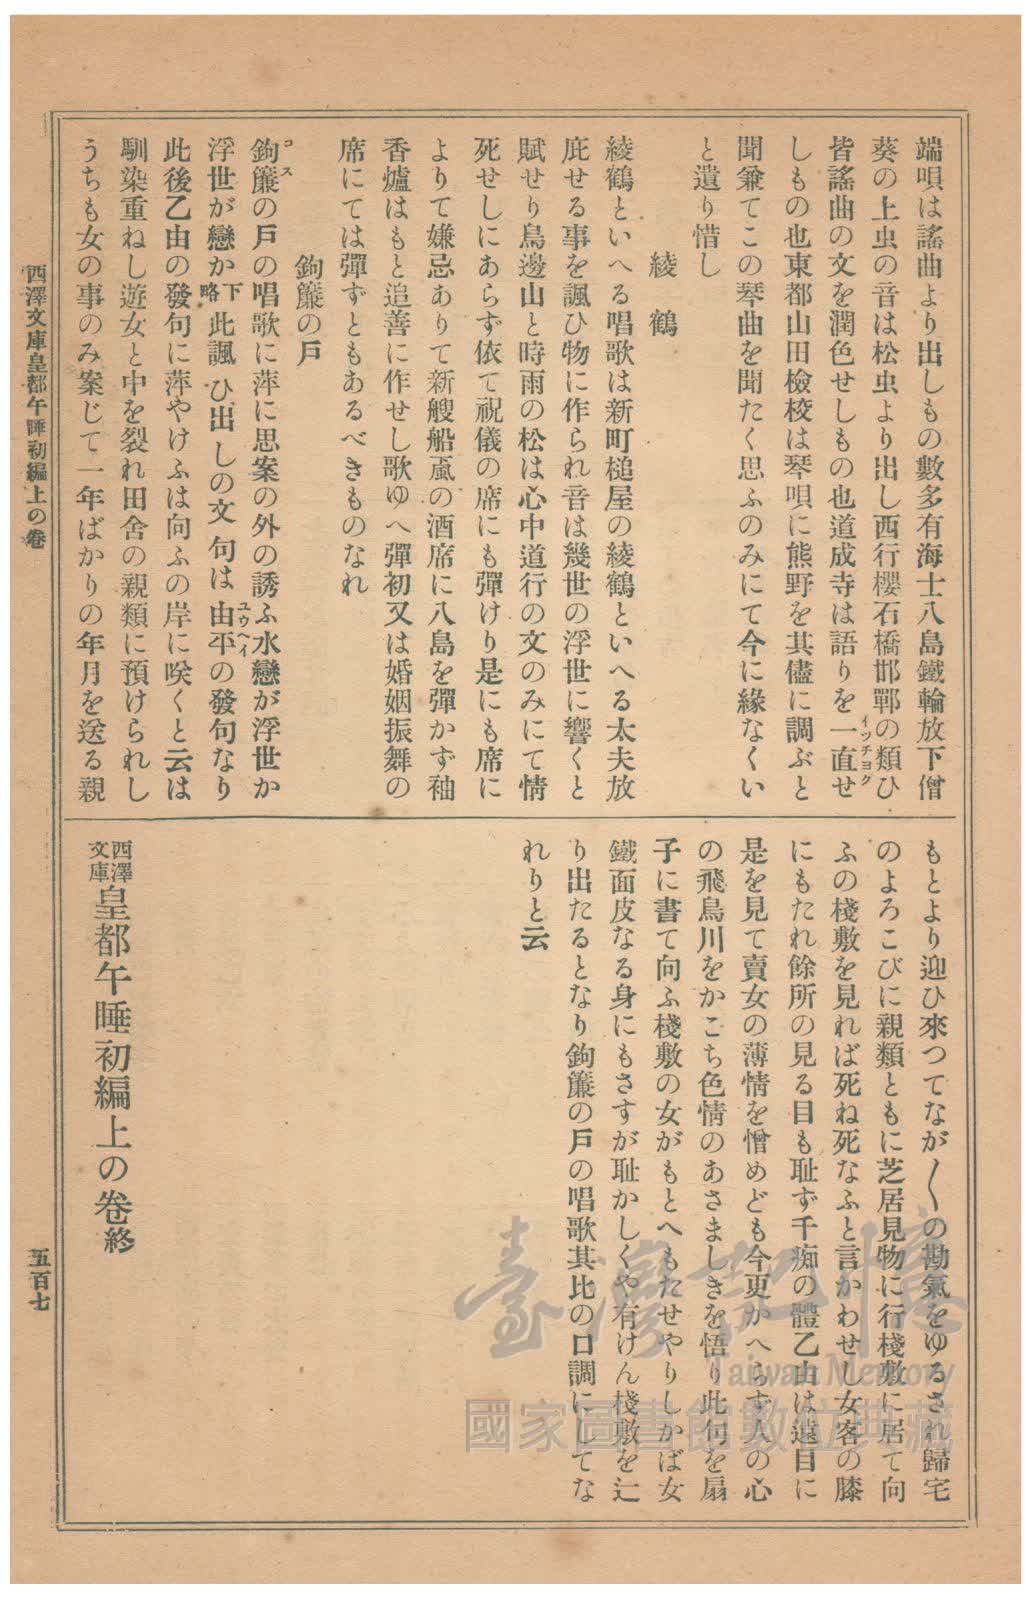 端唄は謠曲より出しもの數多有海士八島鐵輪放下僧
葵の上虫の音は松虫より出し西行櫻石橋邯鄲の類ひ
皆謠曲の文を潤色せしもの也道成寺は語りを一直せ
イツチヨク
しもの也東都山田檢校は琴唄に熊野を其儘に調ぶと
聞兼てこの琴曲を聞たく思ふのみにて今に緣なくい
と遺り惜し
綾鶴
綾鶴といへる唱歌は新町槌屋の綾鶴といへる太夫放
庇せる事を諷ひ物に作られ音は幾世の浮世に響くと
賦せり鳥邊山と時雨の松は心中道行の文のみにて情
死せしにあらず依て祝儀の席にも彈けり是にも席に
よりて嫌忌ありて新艘船颪の酒席に八島を彈かず袖
香爐はもと追善に作せし歌ゆへ彈初又は婚姻振舞の
席にては彈ずともあるべきものなれ
鉤簾の戸
コス
鉤簾の戸の唱歌に萍に思案の外の誘ふ水戀が浮世か
浮世が戀か下略此諷ひ出しの文句は由平の發句なり
ユウヘイ
此後乙由の發句に萍やけふは向ふの岸に咲くと云は
馴染重ねし遊女と中を裂れ田舍の親類に預けられし
うちも女の事のみ案じて一年ばかりの年月を送る親
もとより迎ひ來つてなが〱の勘氣をゆるされ歸宅
のよろこびに親類ともに芝居見物に行棧敷に居て向
ふの棧敷を見れば死ね死なふと言かわせし女客の膝
にもたれ餘所の見る目も耻ず千痴の體乙由は遠目に
是を見て賣女の薄情を憎めども今更かへらず人の心
の飛鳥川をかこち色情のあさましきを悟り此句を扇
子に書て向ふ棧敷の女がもとへもたせやりしかば女
鐵面皮なる身にもさすが耻かしくや有けん棧敷を辷
り出たるとなり鉤簾の戸の唱歌其比の口調にしてな
れりと云
西澤文庫皇都午睡初編上の卷終
西澤文庫皇都午睡初編上の卷
五百七
臺灣記憶
Taiwan Memory
國家圖書館數位典藏